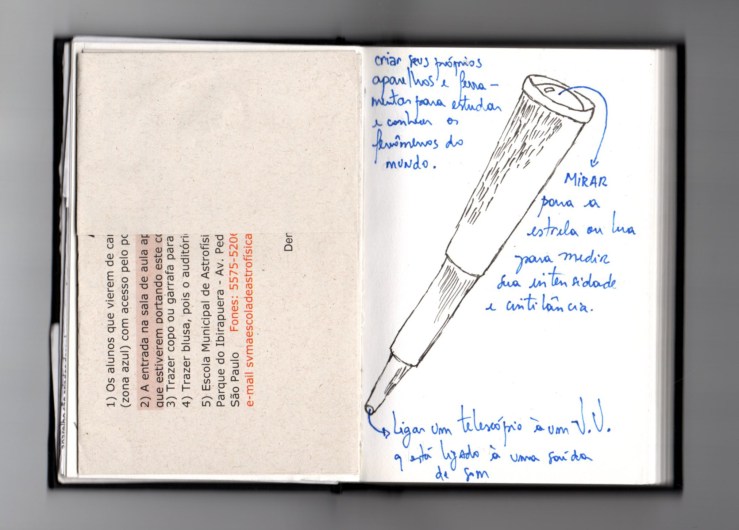 1) Os alunos que vierem de car
(zona azul) com acesso pelo po
2) A entrada na sala de aula ap
que estiverem portando este co
3) Trazer copo ou garrafa para
4) Trazer blusa, pois o auditóri
5) Escola Municipal de Astrofísi
Parque do Ibirapuera - Av. Ped
São Paulo Fones: 5575-520
e-mail svmaescoladeastrofisica
Der
criar seus próprios
aparelhos e ferra-
mentas para estudar
e conhecer os
fenômenos do
mundo.
MIRAR
para a
estrela ou lua
para medir
sua intensidade
e cintilância.
Ligar um telescópio à um V.U.
q está ligado à uma saída
de som